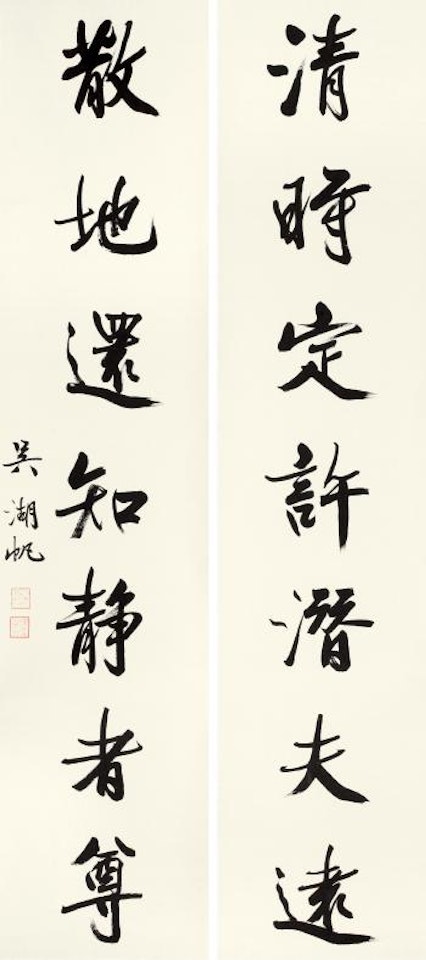 清時定許潛夫遠
散地還知靜者尊
吳湖帆